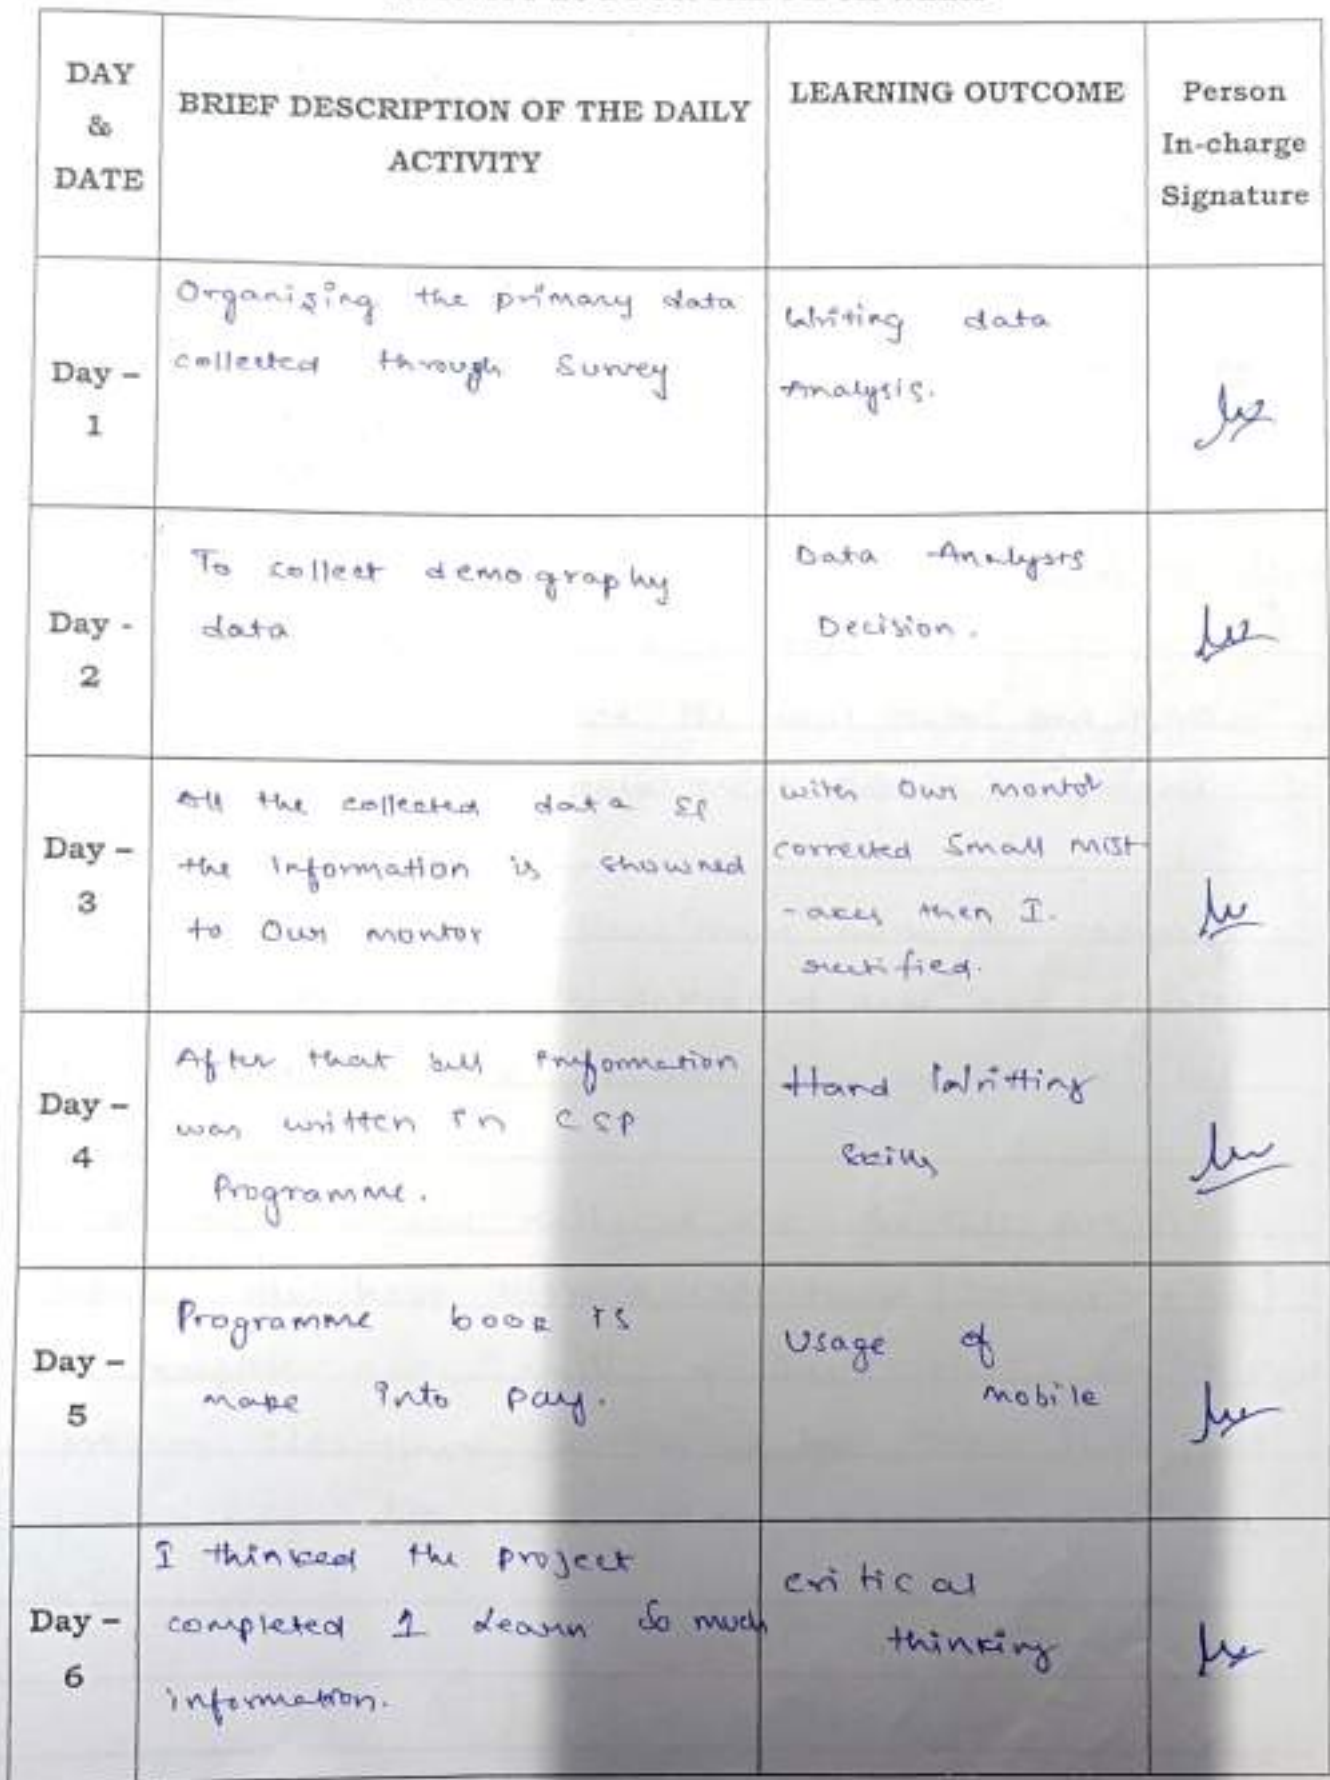 DAY
&
DATE
BRIEF DESCRIPTION OF THE DAILY
ACTIVITY
LEARNING OUTCOME
Person
In-charge
Signature
Day –
1
Organizing the primary data
collected through Survey
Writing data
Analysis.
Day -
2
To collect demography
data
Data Analysis
Decision.
Day –
3
All the collected data
the information is showned
to Our montor
with Our montor
corrected Small mist
-akes then I.
rectified.
Day –
4
After that all information
was written in CSP
Programme.
Hand Writting
Skills
Day –
5
Programme book is
make into
Usage of
mobile
Day –
6
I thinked the project
completed I learn So much
information.
critical
thinking